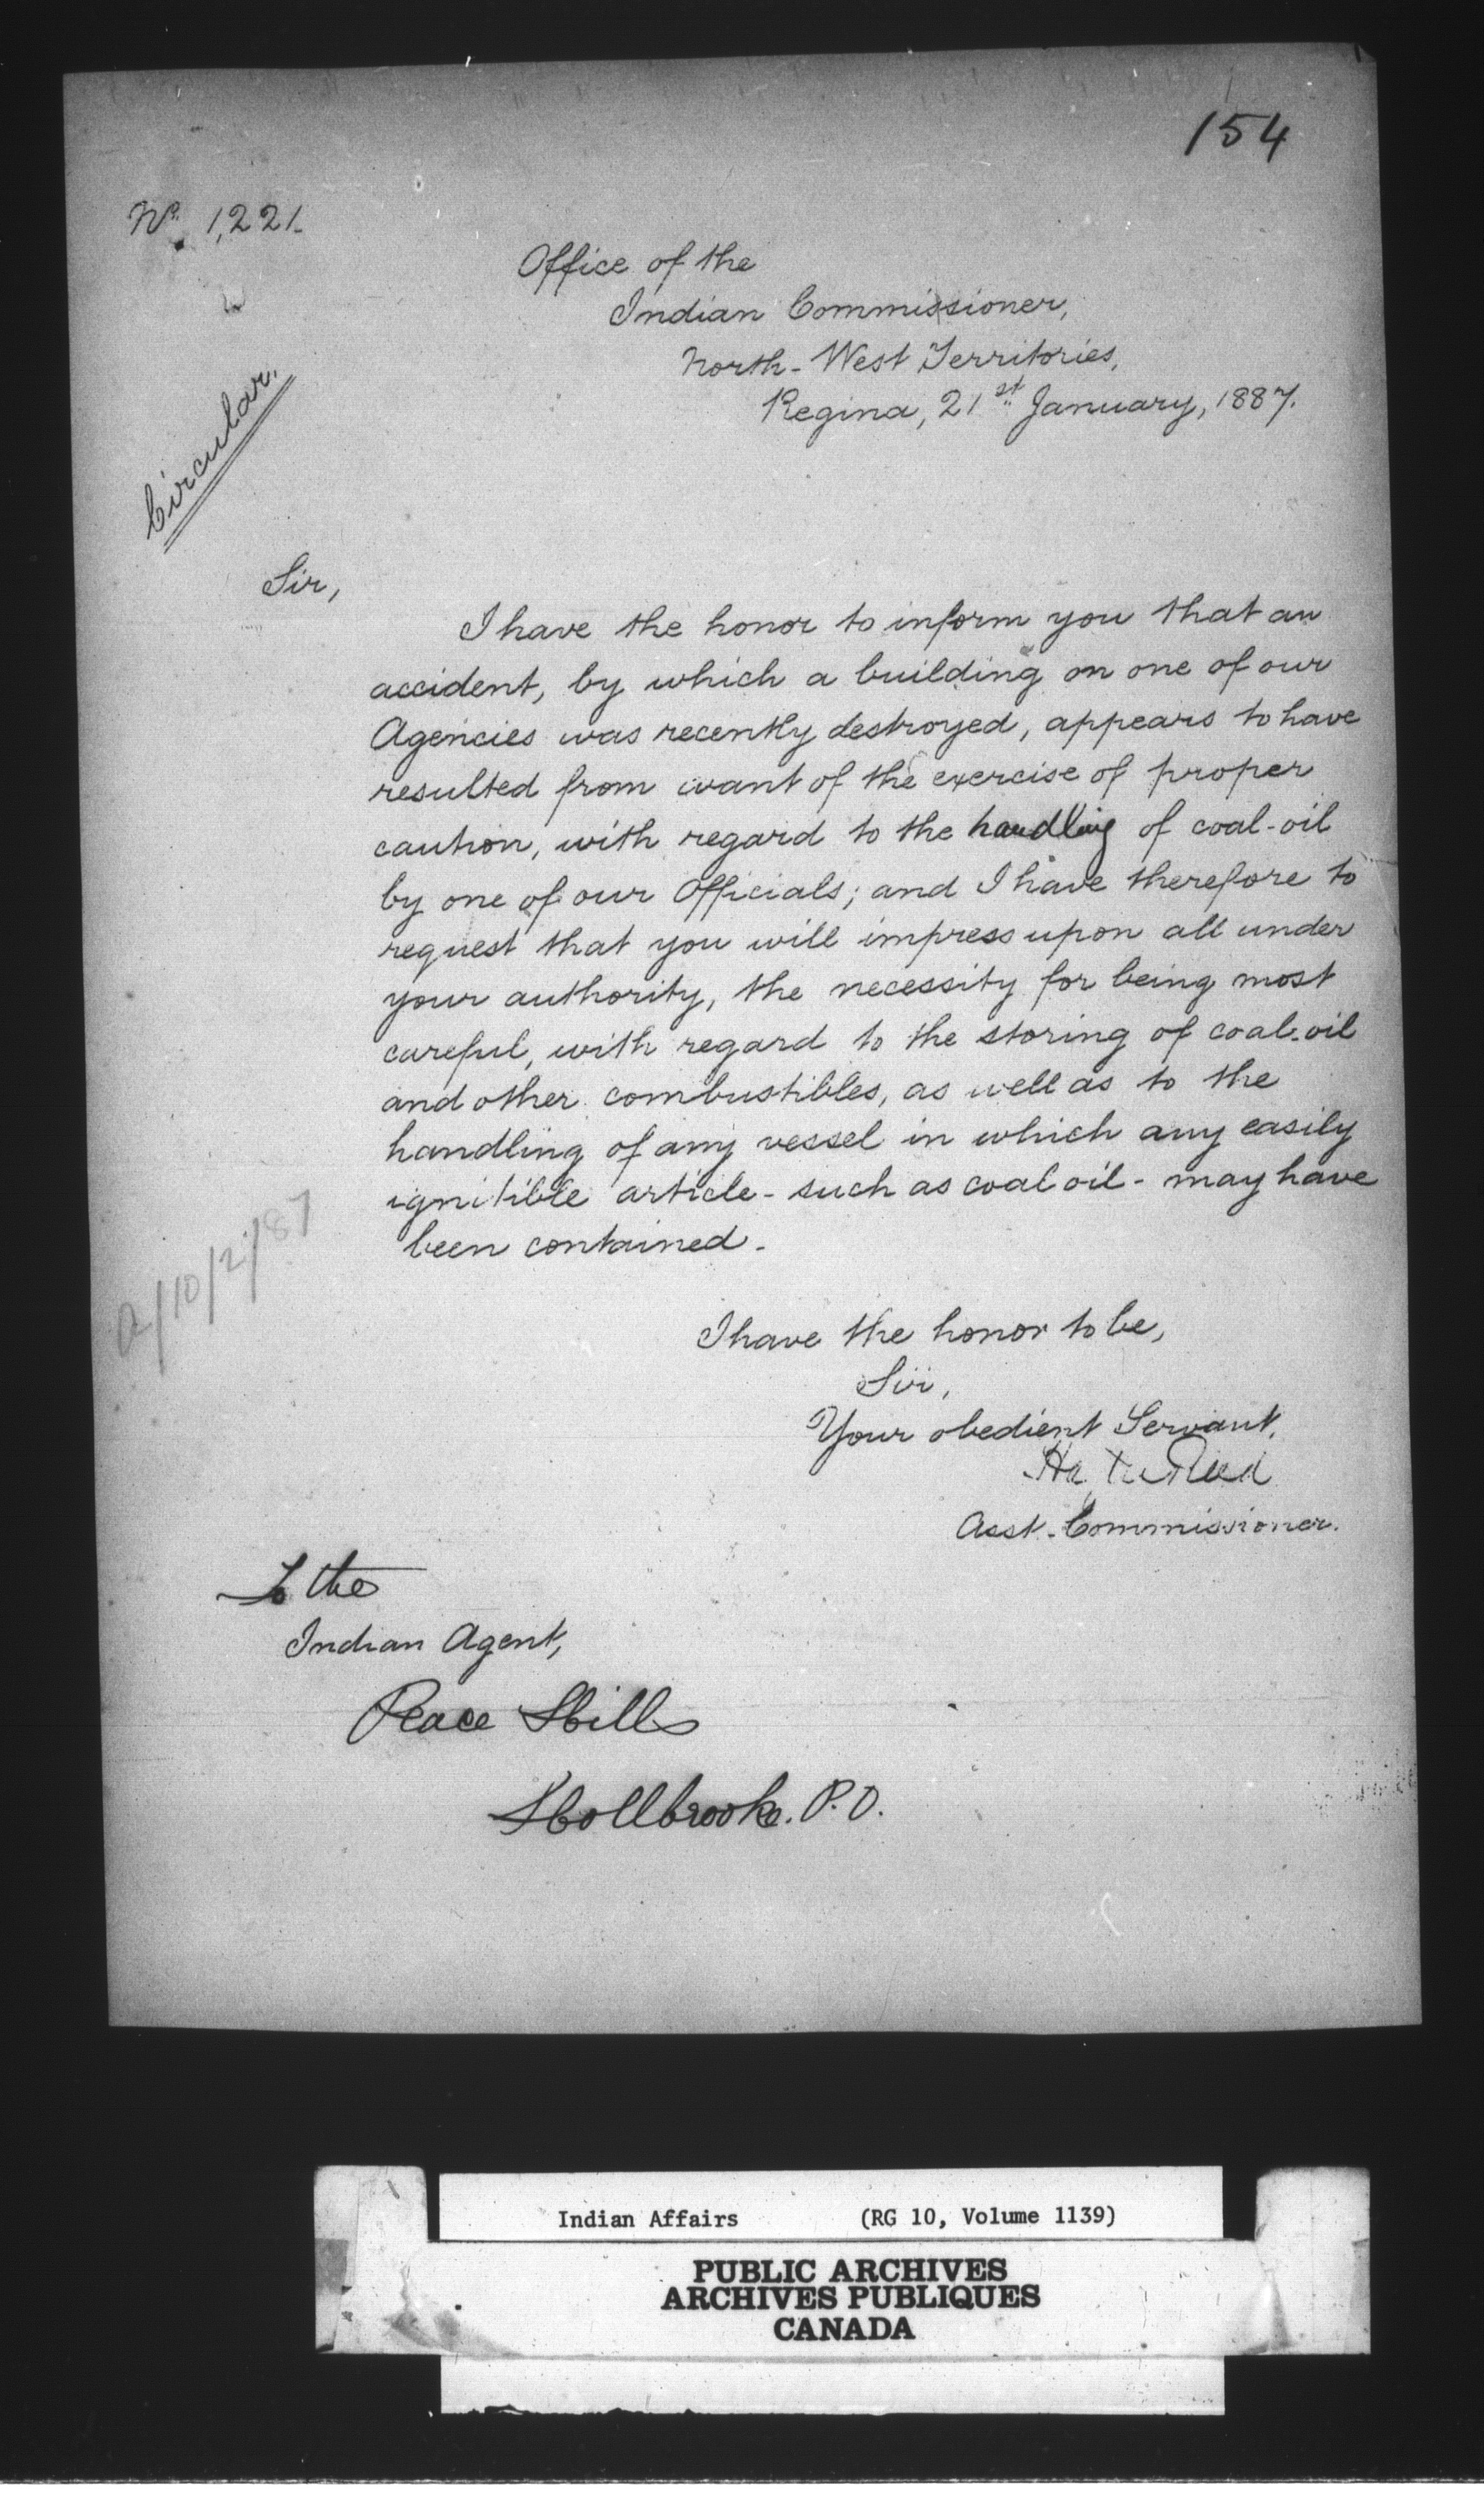 154
No. 1,221.
Office of the
Indian Commissioner,
North-West Territories,
Regina, 21st January, 1887.
Circular.
Sir,
I have the honor to inform you that an
accident, by which a building on one of our
Agencies was recently destroyed, appears to have
resulted from want of the exercise of proper
caution, with regard to the handling of coal-oil
by one of our Officials; and I have therefore to
request that you will impress upon all under
your authority, the necessity for being most
careful, with regard to the storing of coal-oil
and other combustibles, as well as to the
handling of any vessel in which any easily
ignitible article - such as coal oil - may have
been contained.
a/10/2/87
I have the honor to be,
Sir,
Your obedient Servant,
Reed
Asst. Commissioner.
To the
Indian Agent,
Peace Hills
Hollbrooke. P.O.
Indian Affairs (RG 10, Volume 1139)
PUBLIC ARCHIVES
ARCHIVES PUBLIQUES
CANADA